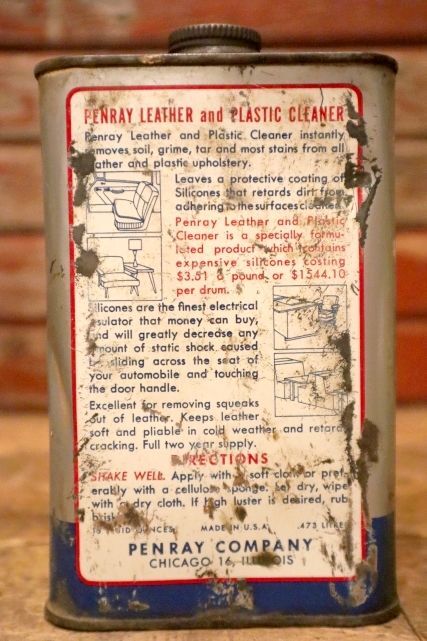 PENRAY LEATHER and PLASTIC CLEANER
Penray Leather and Plastic Cleaner instantly
removes soil, grime, tar and most stains from all
leather and plastic upholstery.
Leaves a protective coating of
Silicones that retards dirt from
adhering to the surfaces cleaned.
Penray Leather and Plastic
Cleaner is a specially formu-
lated product which contains
expensive silicones costing
$3.51 a pound or $1544.10
per drum.
Silicones are the finest electrical
insulator that money can buy,
and will greatly decrease any
amount of static shock caused
by sliding across the seat of
your automobile and touching
the door handle.
Excellent for removing squeaks
out of leather. Keeps leather
soft and pliable in cold weather and retards
cracking. Full two year supply.
DIRECTIONS
SHAKE WELL. Apply with a soft cloth or pref-
erably with a cellulose sponge. Let dry, wipe
with a dry cloth. If high luster is desired, rub
briskly.
16 FLUID OUNCES MADE IN U.S.A. .473 LITRE
PENRAY COMPANY
CHICAGO 16, ILLINOIS